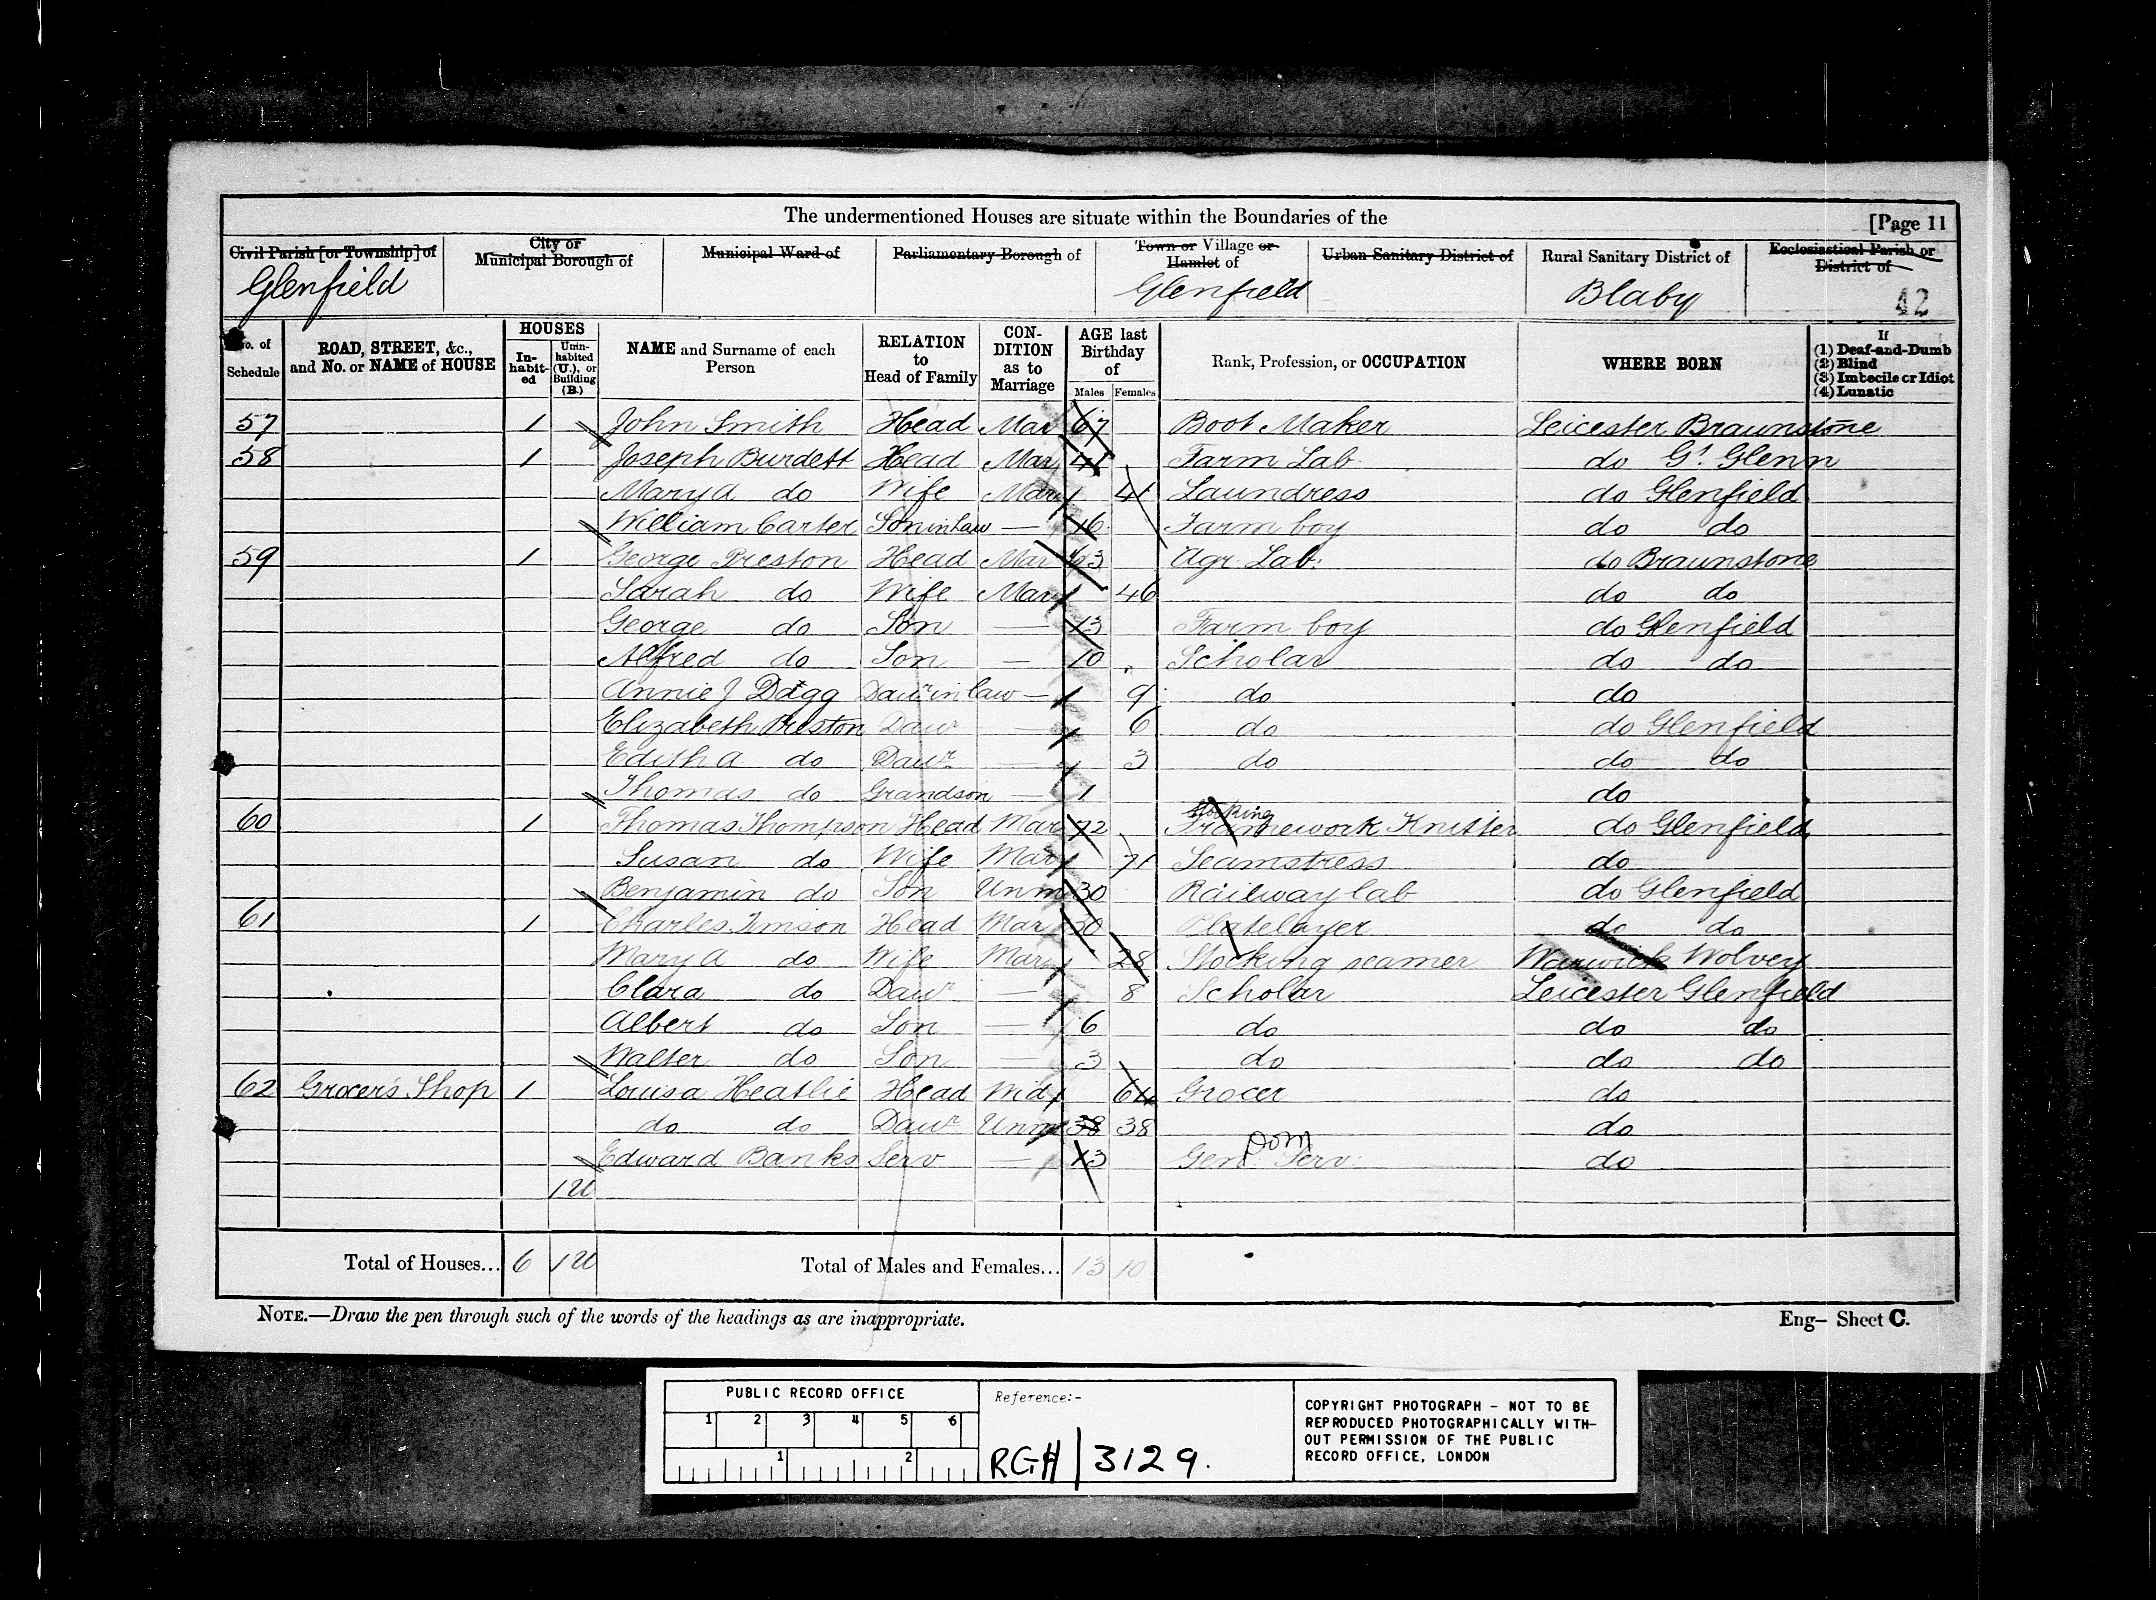 The undermentioned Houses are situate within the Boundaries of the [Page 11
Civil Parish [or Township] of City or Municipal Borough of Municipal Ward of Parliamentary Borough of Town or Village or Hamlet of Urban Sanitary District of Rural Sanitary District of Ecclesiastical Parish or District of
Glenfield Glenfield Blaby 42
No. of Schedule ROAD, STREET, &c., and No. or NAME of HOUSE HOUSES In-habit-ed Unin-habited (U.), or Building (B.) NAME and Surname of each Person RELATION to Head of Family CON-DITION as to Marriage AGE last Birthday of Males Females Rank, Profession, or OCCUPATION WHERE BORN If (1) Deaf-and-Dumb (2) Blind (3) Imbecile or Idiot (4) Lunatic
57 1 John Smith Head Mar 67 Boot Maker Leicester Braunstone
58 1 Joseph Burdett Head Mar 41 Farm Lab do Gt. Glenn
Mary A do Wife Mar 41 Laundress do Glenfield
William Carter Son in law — 16 Farm boy do do
59 1 George Preston Head Mar 63 Agr. Lab. do Braunstone
Sarah do Wife Mar 46 do do
George do Son — 13 Farm boy do Glenfield
Alfred do Son — 10 Scholar do do
Annie J Dagg Daur in law — 9 do do
Elizabeth Preston Daur — 6 do do Glenfield
Edith A do Daur — 3 do do do
Thomas do Grandson — 1 do
60 1 Thomas Thompson Head Mar 72 Stocking Framework Knitter do Glenfield
Susan do Wife Mar 71 Seamstress do
Benjamin do Son Unm 30 Railway lab do Glenfield
61 1 Charles Timson Head Mar 30 Platelayer do do
Mary A do Wife Mar 28 Stocking seamer Warwick Wolvey
Clara do Daur — 8 Scholar Leicester Glenfield
Albert do Son — 6 do do do
Walter do Son — 3 do do do
62 Grocer's Shop 1 Louisa Heatlie Head Wid 64 Grocer do
do do Daur Unm 38 38 do
Edward Banks Serv — 13 Gen Dom Serv. do
1 U
Total of Houses... 6 1 U Total of Males and Females... 13 10
NOTE.—Draw the pen through such of the words of the headings as are inappropriate. Eng— Sheet C.
PUBLIC RECORD OFFICE
1 2 3 4 5 6
1 2
Reference:-
RG11/3129.
COPYRIGHT PHOTOGRAPH - NOT TO BE
REPRODUCED PHOTOGRAPHICALLY WITH-
OUT PERMISSION OF THE PUBLIC
RECORD OFFICE, LONDON